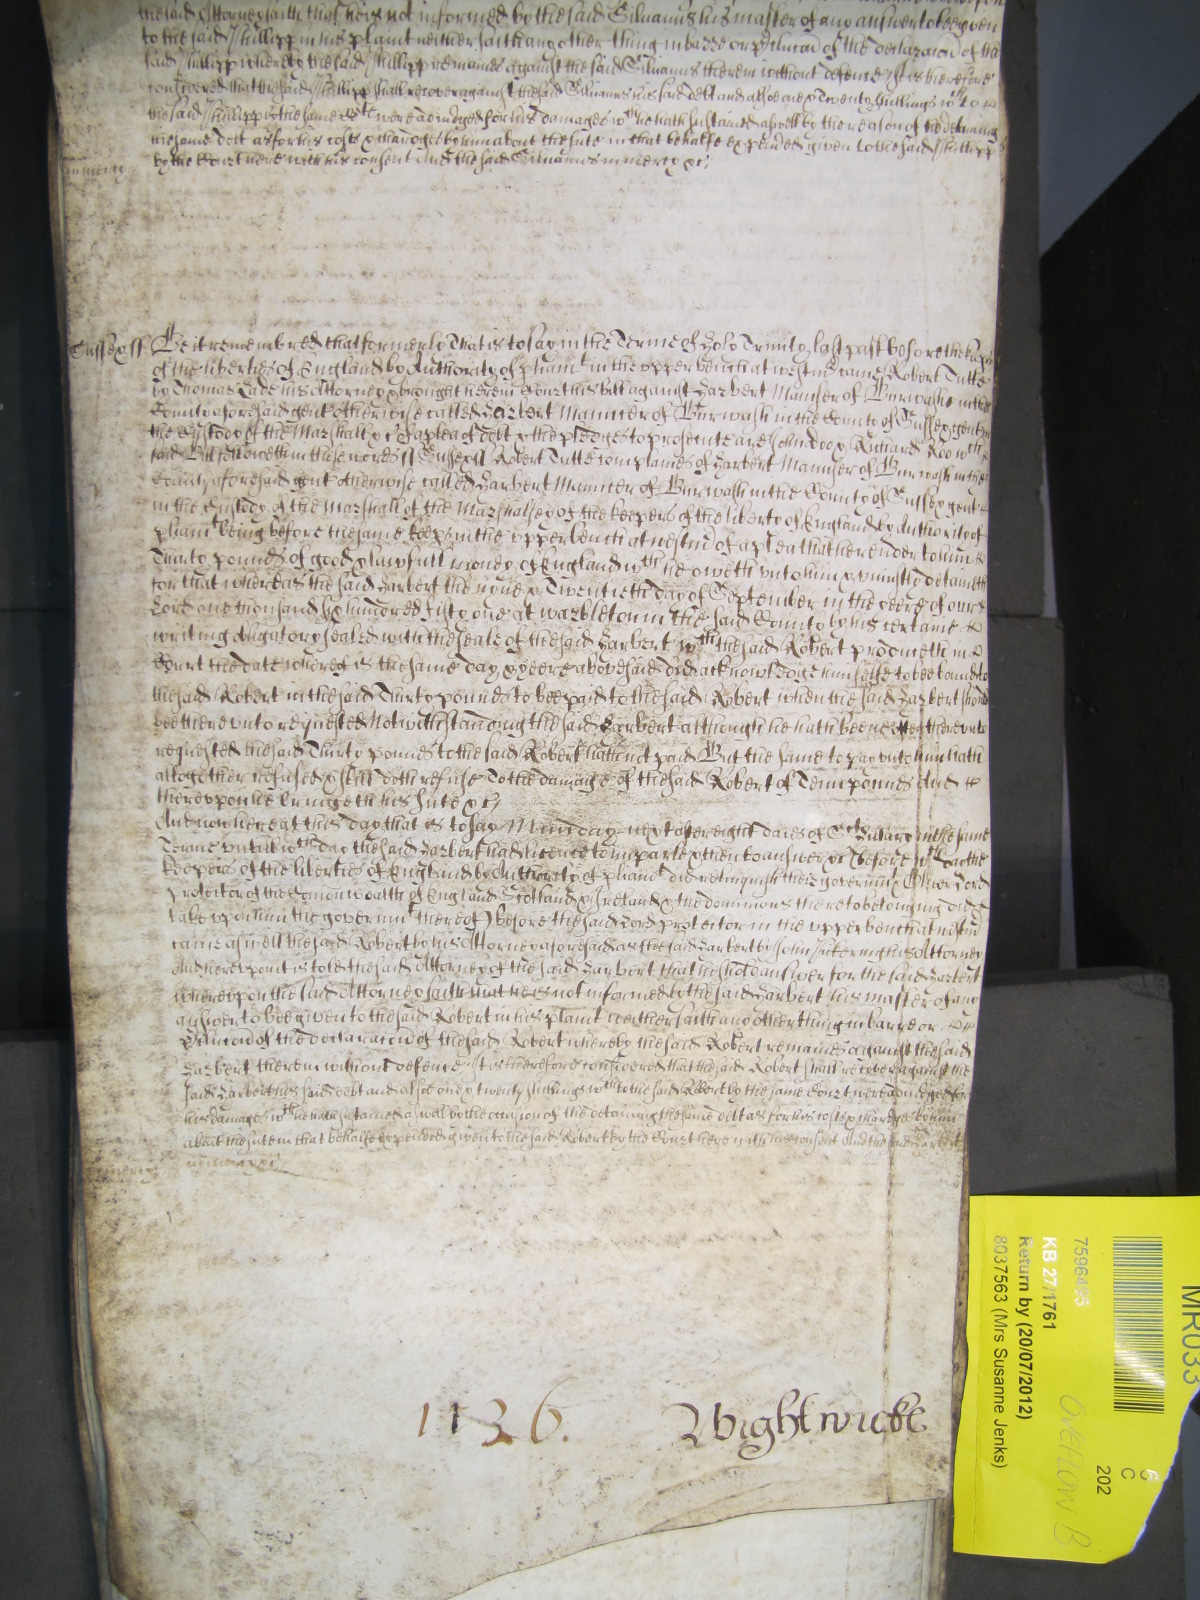 the said Attorney saith that hee is not informed by the said Silvanus his master of any answer to bee given
to the said Phillipp in his plaint neither saith any other thing in barre or p'clusion of the declaracion of the
said Phillipp whereby the said Phillipp remaines against the said Silvanus therein without defence It is therefore
considered that the said Phillipp shall recover against the said Silvanus his said debt and alsoe one & Twenty shillings wch to
the said Phillipp by the same were adiudged for his damages wch he hath susteined aswell by the reason of the deteining
the same debt as for his costs & charges by him about the sute in that behalfe expended given to the said Phillipp
by the Court here with his consent And the said Silvanus in mercy &c
in mercy
Sussex ss Be it remembred that formerly That is to say in the Terme of Holy Trinity last past before the keep
of the liberties of England by Authority of pliamt in the upper bench at westm came Robert Tutte
by Thomas Lade his Attorney & brought here in Court his bill against Harbert Manuser of Burwash in the
County aforesaid gent otherwise called Harbert Manncer of Burwash in the County of Sussex gent in
the Custody of the Marshall &c of a plea of debt & the pledges to prosecute are John Doo & Richard Roo wch
said Bill followeth in these words ss Sussex ss Robert Tutte complaines of Harbert Manuser of Burwash in the
County aforesaid gent otherwise called Harbert Manncer of Burwash in the County of Sussex gent
in the Custody of the Marshall of the Marshalsey of the keepers of the liberty of England by Authority of
pliamt being before the same keeps in the upper bench at westm of a plea that he render to him
Thirty pounds of good & lawfull money of England wch he oweth unto him & uniustly deteineth
for that whereas the said Harbert the nyne & Twentieth day of September in the yeere of our
Lord one thousand six hundred fifty one at warbleton in the said County by his certaine
writing obligatory sealed with the seale of the said Harbert wch the said Robert produceth in
Court the date whereof is the same day & yeere abovesaid did acknowledge himselfe to bee bound to
the said Robert in the said Thirty pounds to bee paid to the said Robert when the said Harbert should
bee thereunto requested Notwithstanding the said Harbert although he hath beene often thereunto
requested the said Thirty pounds to the said Robert hath not paid But the same to pay unto him hath
altogether refused & still doth refuse To the damage of the said Robert of Tenn pounds And
thereupon he bringeth his sute &c
And now here at this day that is to say Munday next after eight daies of St Hillary in the same
Terme untill wch day the said Harbert had licence to imparle & then to answer &c (before wch day the
keepers of the liberties of England by Authority of pliamt did relinquish their governmt & Oliver Lord
Protector of the Comonwealth of England Scotland & Ireland & the dominions thereto belonging did
take upon him the governmt thereof) before the said Lord protector in the upper bench at westm
came aswell the said Robert by his Attorney aforesaid as the said Harbert by John Pickering his Attorney
And hereupon it is told the said Attorney of the said Harbert that he shold answer for the said Harbert
whereupon the said Attorney saith that he is not informed by the said Harbert his master of any
answer to bee given to the said Robert in his plaint neither saith any other thing in barre or
p'clusion of the declaracion of the said Robert whereby the said Robert remaines against the said
Harbert therein without defence It is therefore considered that the said Robert shall recover against the
said Harbert his said debt and alsoe one & twenty shillings wch to the said Robert by the same Court were adiudged for
his damages wch he hath susteined aswell by the occasion of the deteining the same debt as for his costs & chardges by him
about the sute in that behalfe expended given to the said Robert by the Court here with his consent And the said Harbert
in mercy &c
in mercy
1136.
Wightwicke
MR033
6
C
202
7596495
KB 27/1761
Return by (20/07/2012)
8037563 (Mrs Susanne Jenks)
OVEFLOW B